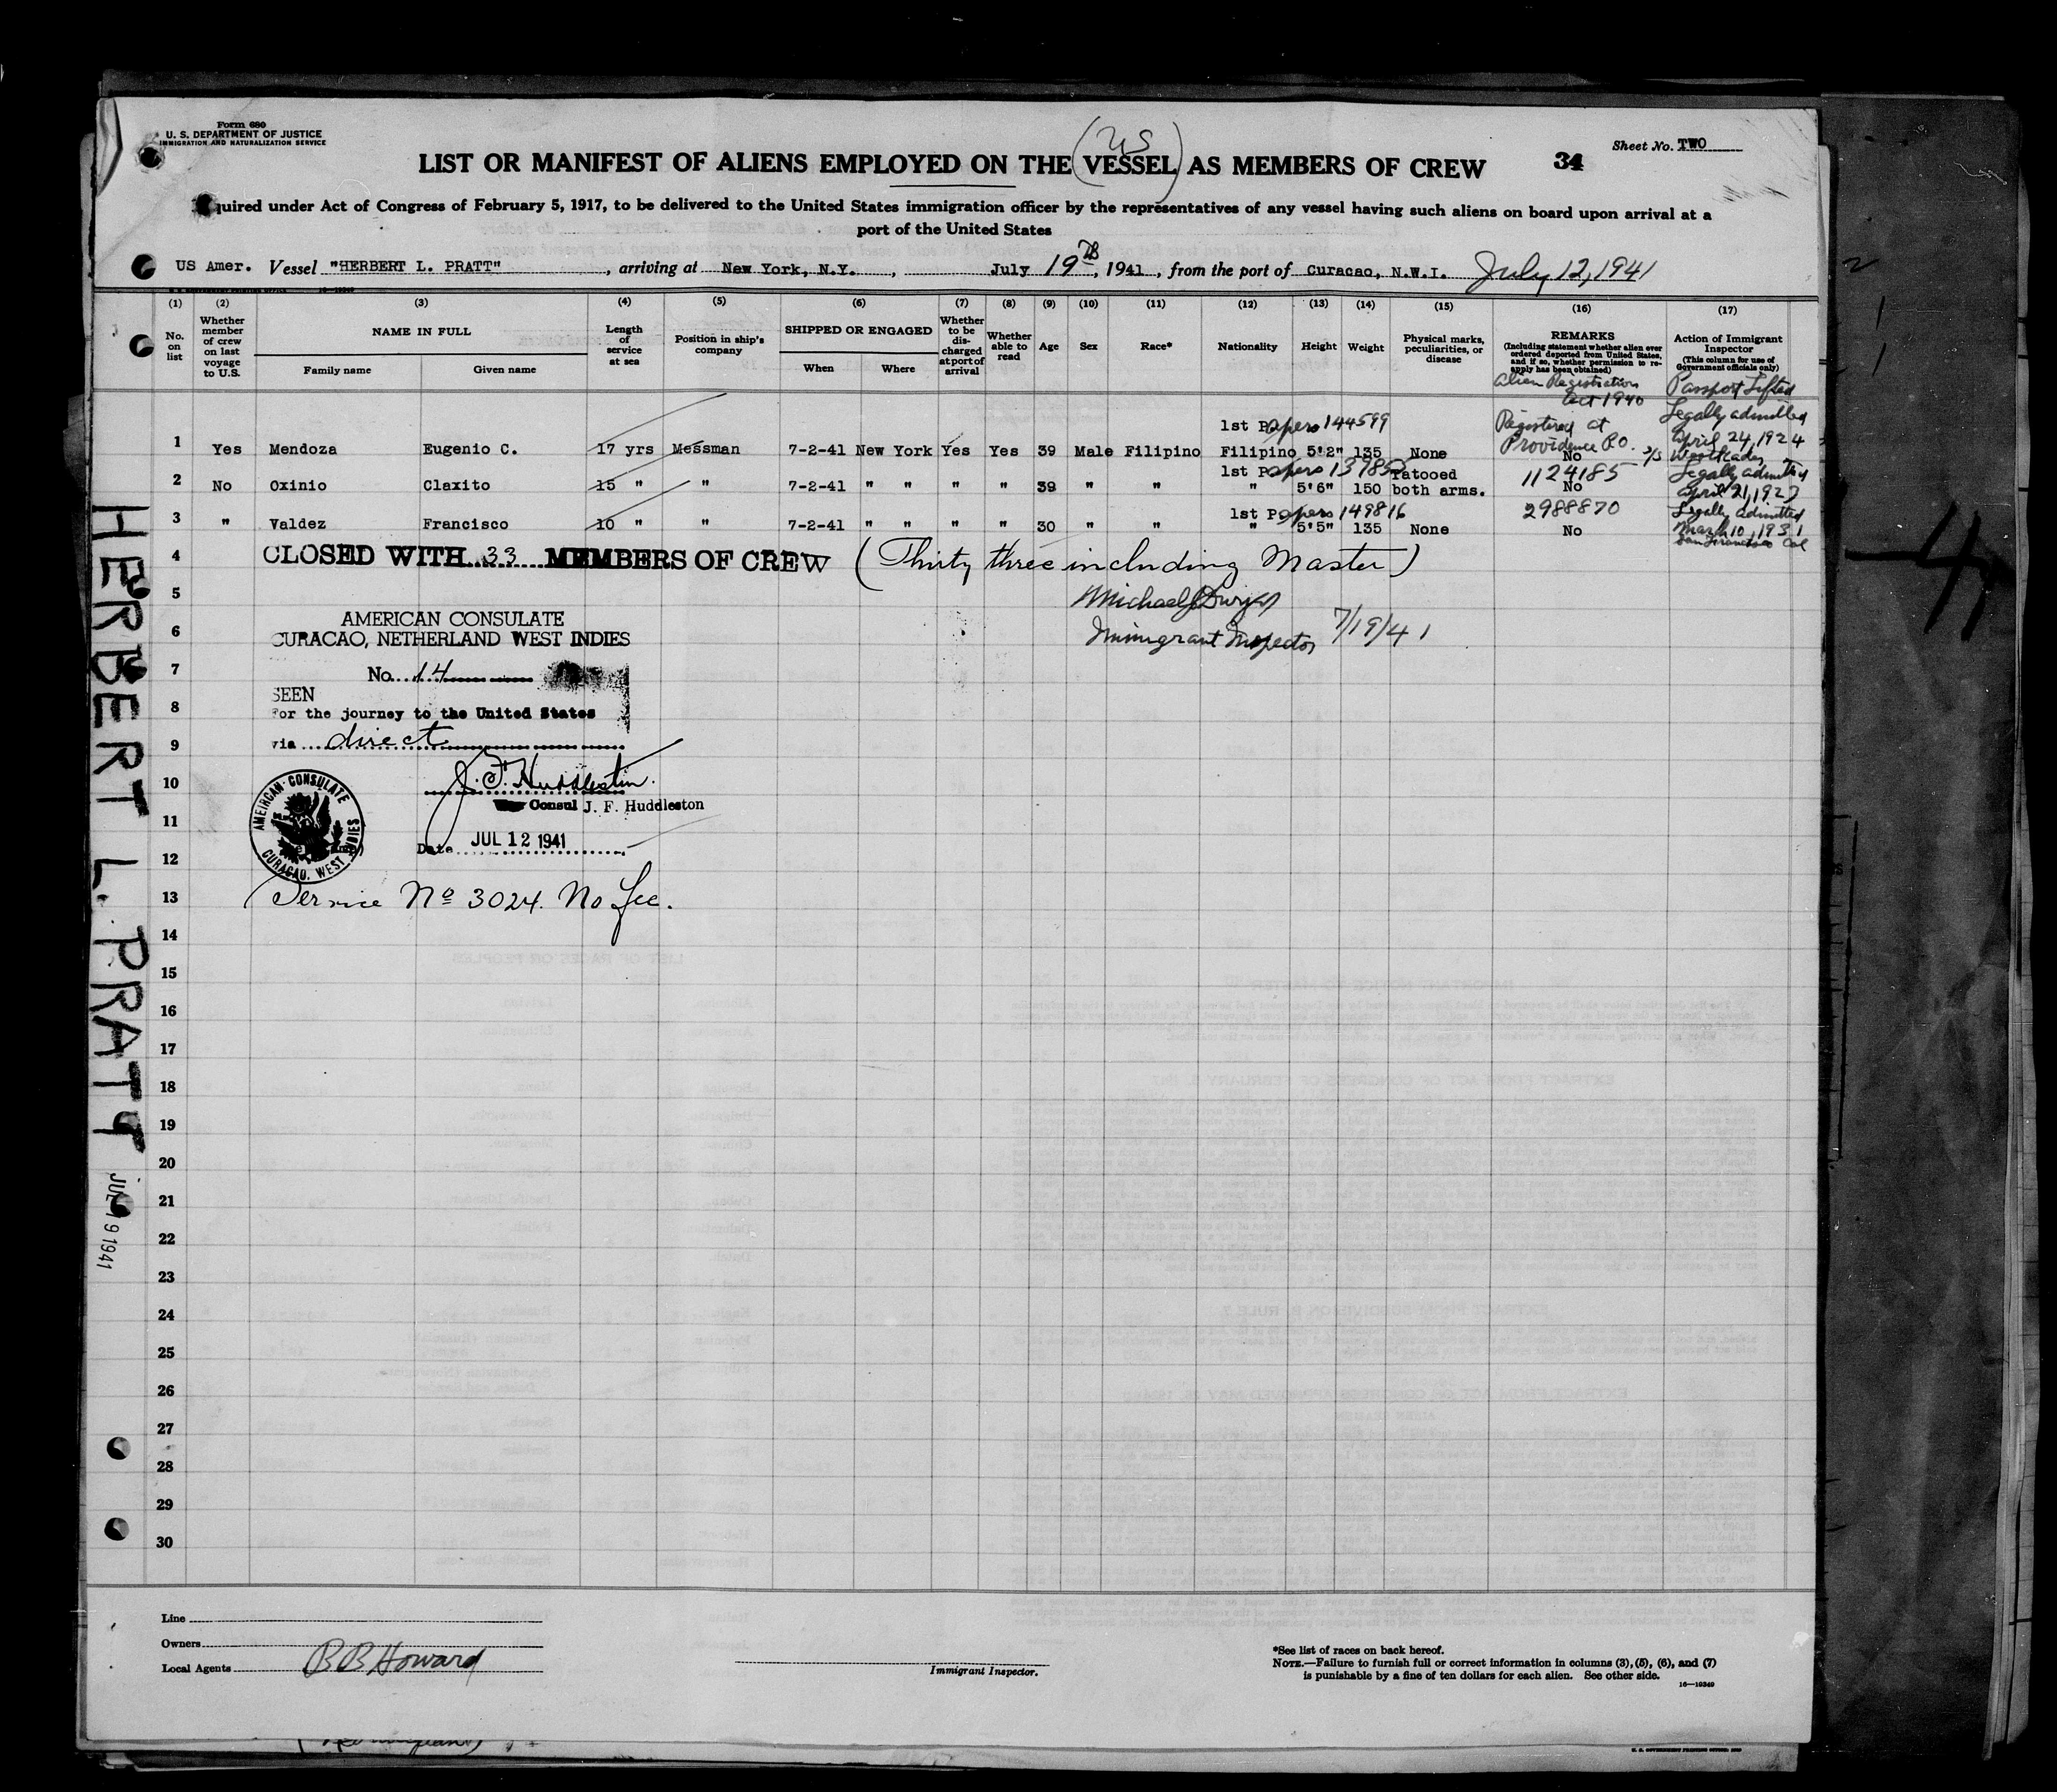 Form 680
U. S. DEPARTMENT OF JUSTICE
IMMIGRATION AND NATURALIZATION SERVICE
Sheet No. TWO
(US)
LIST OR MANIFEST OF ALIENS EMPLOYED ON THE VESSEL AS MEMBERS OF CREW
34
quired under Act of Congress of February 5, 1917, to be delivered to the United States immigration officer by the representatives of any vessel having such aliens on board upon arrival at a
port of the United States
US Amer. Vessel "HERBERT L. PRATT", arriving at New York, N.Y., July 19th, 1941, from the port of Curacao, N.W.I. July 12, 1941
(1) (2) (3) (4) (5) (6) (7) (8) (9) (10) (11) (12) (13) (14) (15) (16) (17)
No. on list
Whether member of crew on last voyage to U.S.
NAME IN FULL
Family name Given name
Length of service at sea
Position in ship's company
SHIPPED OR ENGAGED
When Where
Whether to be discharged at port of arrival
Whether able to read
Age Sex Race* Nationality Height Weight
Physical marks, peculiarities, or disease
REMARKS
(Including statement whether alien ever ordered deported from United States, and if so, whether permission to reapply has been obtained)
Action of Immigrant Inspector
(This column for use of Government officials only)
Alien Registration Act 1940 Passport Lifted
1st Papers 144599 Registered at Legally admitted
Providence P.O. April 24, 1924
1 Yes Mendoza Eugenio C. 17 yrs Messman 7-2-41 New York Yes Yes 39 Male Filipino Filipino 5'2" 135 None No
1st Papers Tatooed 1124185 Legally admitted
2 No Oxinio Claxito 15 " " 7-2-41 " " " " 39 " " " 5'6" 150 both arms. No April 21, 1927
1st Papers 149816 2988870 Legally admitted
3 " Valdez Francisco 10 " " 7-2-41 " " " " 30 " " " 5'5" 135 None No March 10, 1931
San Francisco Cal
4 CLOSED WITH 33 MEMBERS OF CREW (Thirty three including Master)
5 Michael J Dwyer
6 Immigrant Inspector 7/19/41
AMERICAN CONSULATE
CURACAO, NETHERLAND WEST INDIES
7 No. 14
SEEN
8 For the journey to the United States
9 via direct
10 J. F. Huddleston
Consul J. F. Huddleston
11 AMERICAN CONSULATE CURACAO, WEST INDIES
Date JUL 12 1941
12
13 Service No 3024. No fee.
14
15
16
17
18
19
20
21
22
23
24
25
26
27
28
29
30
HERBERT L. PRATT
JUL 19 1941
Line
Owners
Local Agents B B Howard
Immigrant Inspector.
*See list of races on back hereof.
NOTE.—Failure to furnish full or correct information in columns (3), (5), (6), and (7)
is punishable by a fine of ten dollars for each alien. See other side.
16—19349